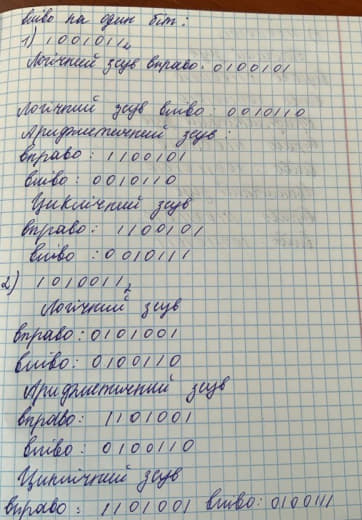 вліво на один біт:
1) 1001011₂
Логічний зсув вправо: 0100101
Логічний зсув вліво: 0010110
Арифметичний зсув:
вправо: 1100101
вліво: 0010110
Циклічний зсув
вправо: 1100101
вліво: 0010111
2) 1010011₂
Логічний зсув
вправо: 0101001
вліво: 0100110
Арифметичний зсув
вправо: 1101001
вліво: 0100110
Циклічний зсув
вправо: 1101001 вліво: 0100111